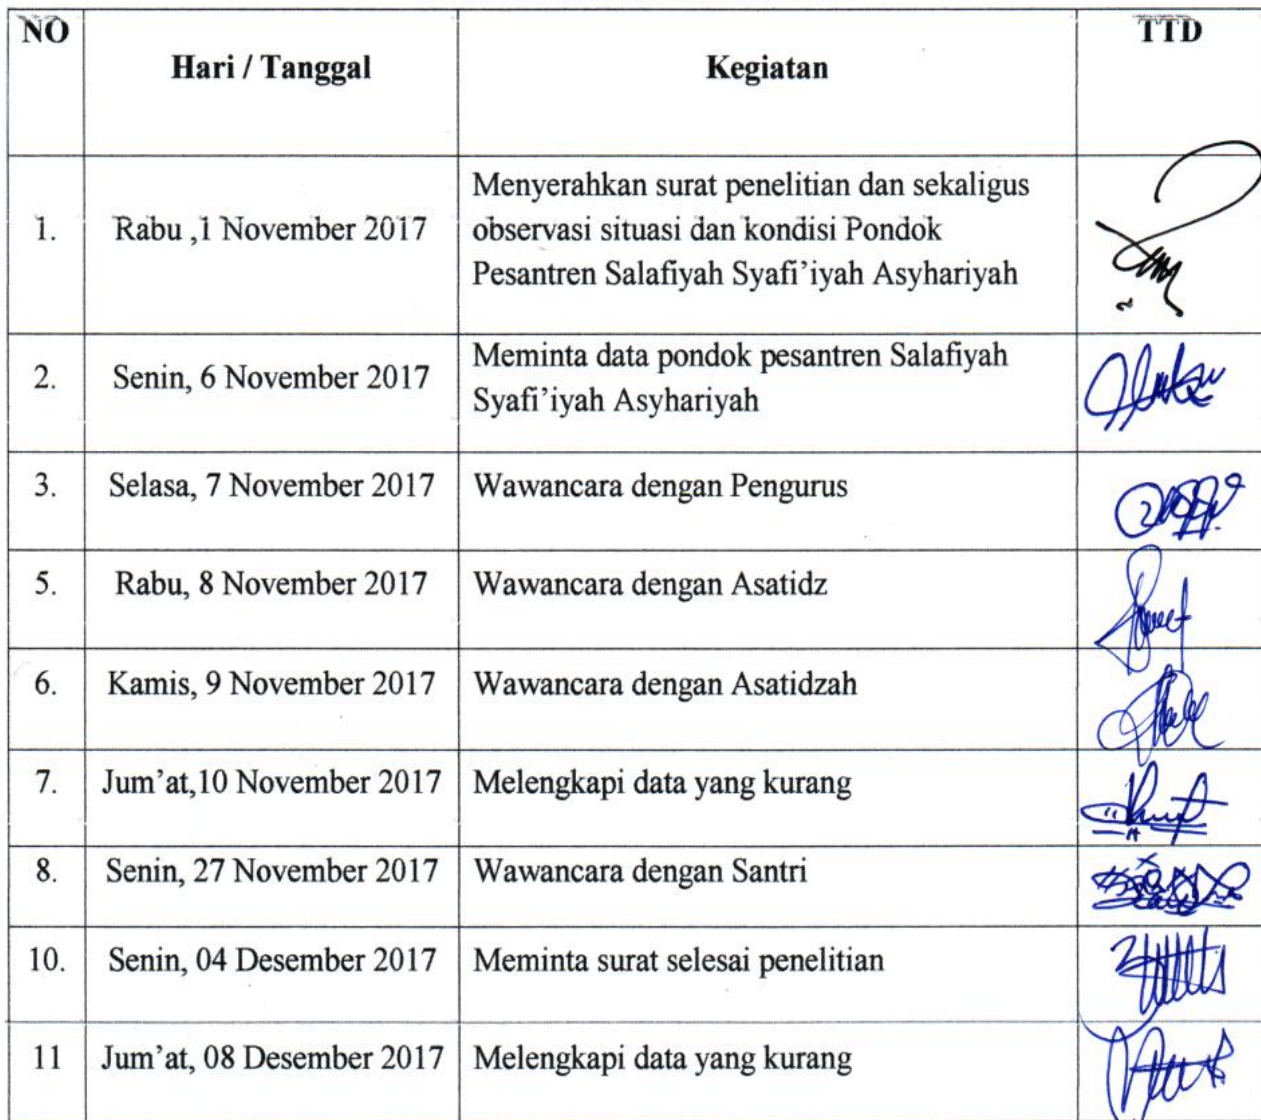 NO Hari / Tanggal Kegiatan TTD
1. Rabu ,1 November 2017 Menyerahkan surat penelitian dan sekaligus
observasi situasi dan kondisi Pondok
Pesantren Salafiyah Syafi’iyah Asyhariyah
2. Senin, 6 November 2017 Meminta data pondok pesantren Salafiyah
Syafi’iyah Asyhariyah
3. Selasa, 7 November 2017 Wawancara dengan Pengurus
5. Rabu, 8 November 2017 Wawancara dengan Asatidz
6. Kamis, 9 November 2017 Wawancara dengan Asatidzah
7. Jum’at,10 November 2017 Melengkapi data yang kurang
8. Senin, 27 November 2017 Wawancara dengan Santri
10. Senin, 04 Desember 2017 Meminta surat selesai penelitian
11 Jum’at, 08 Desember 2017 Melengkapi data yang kurang